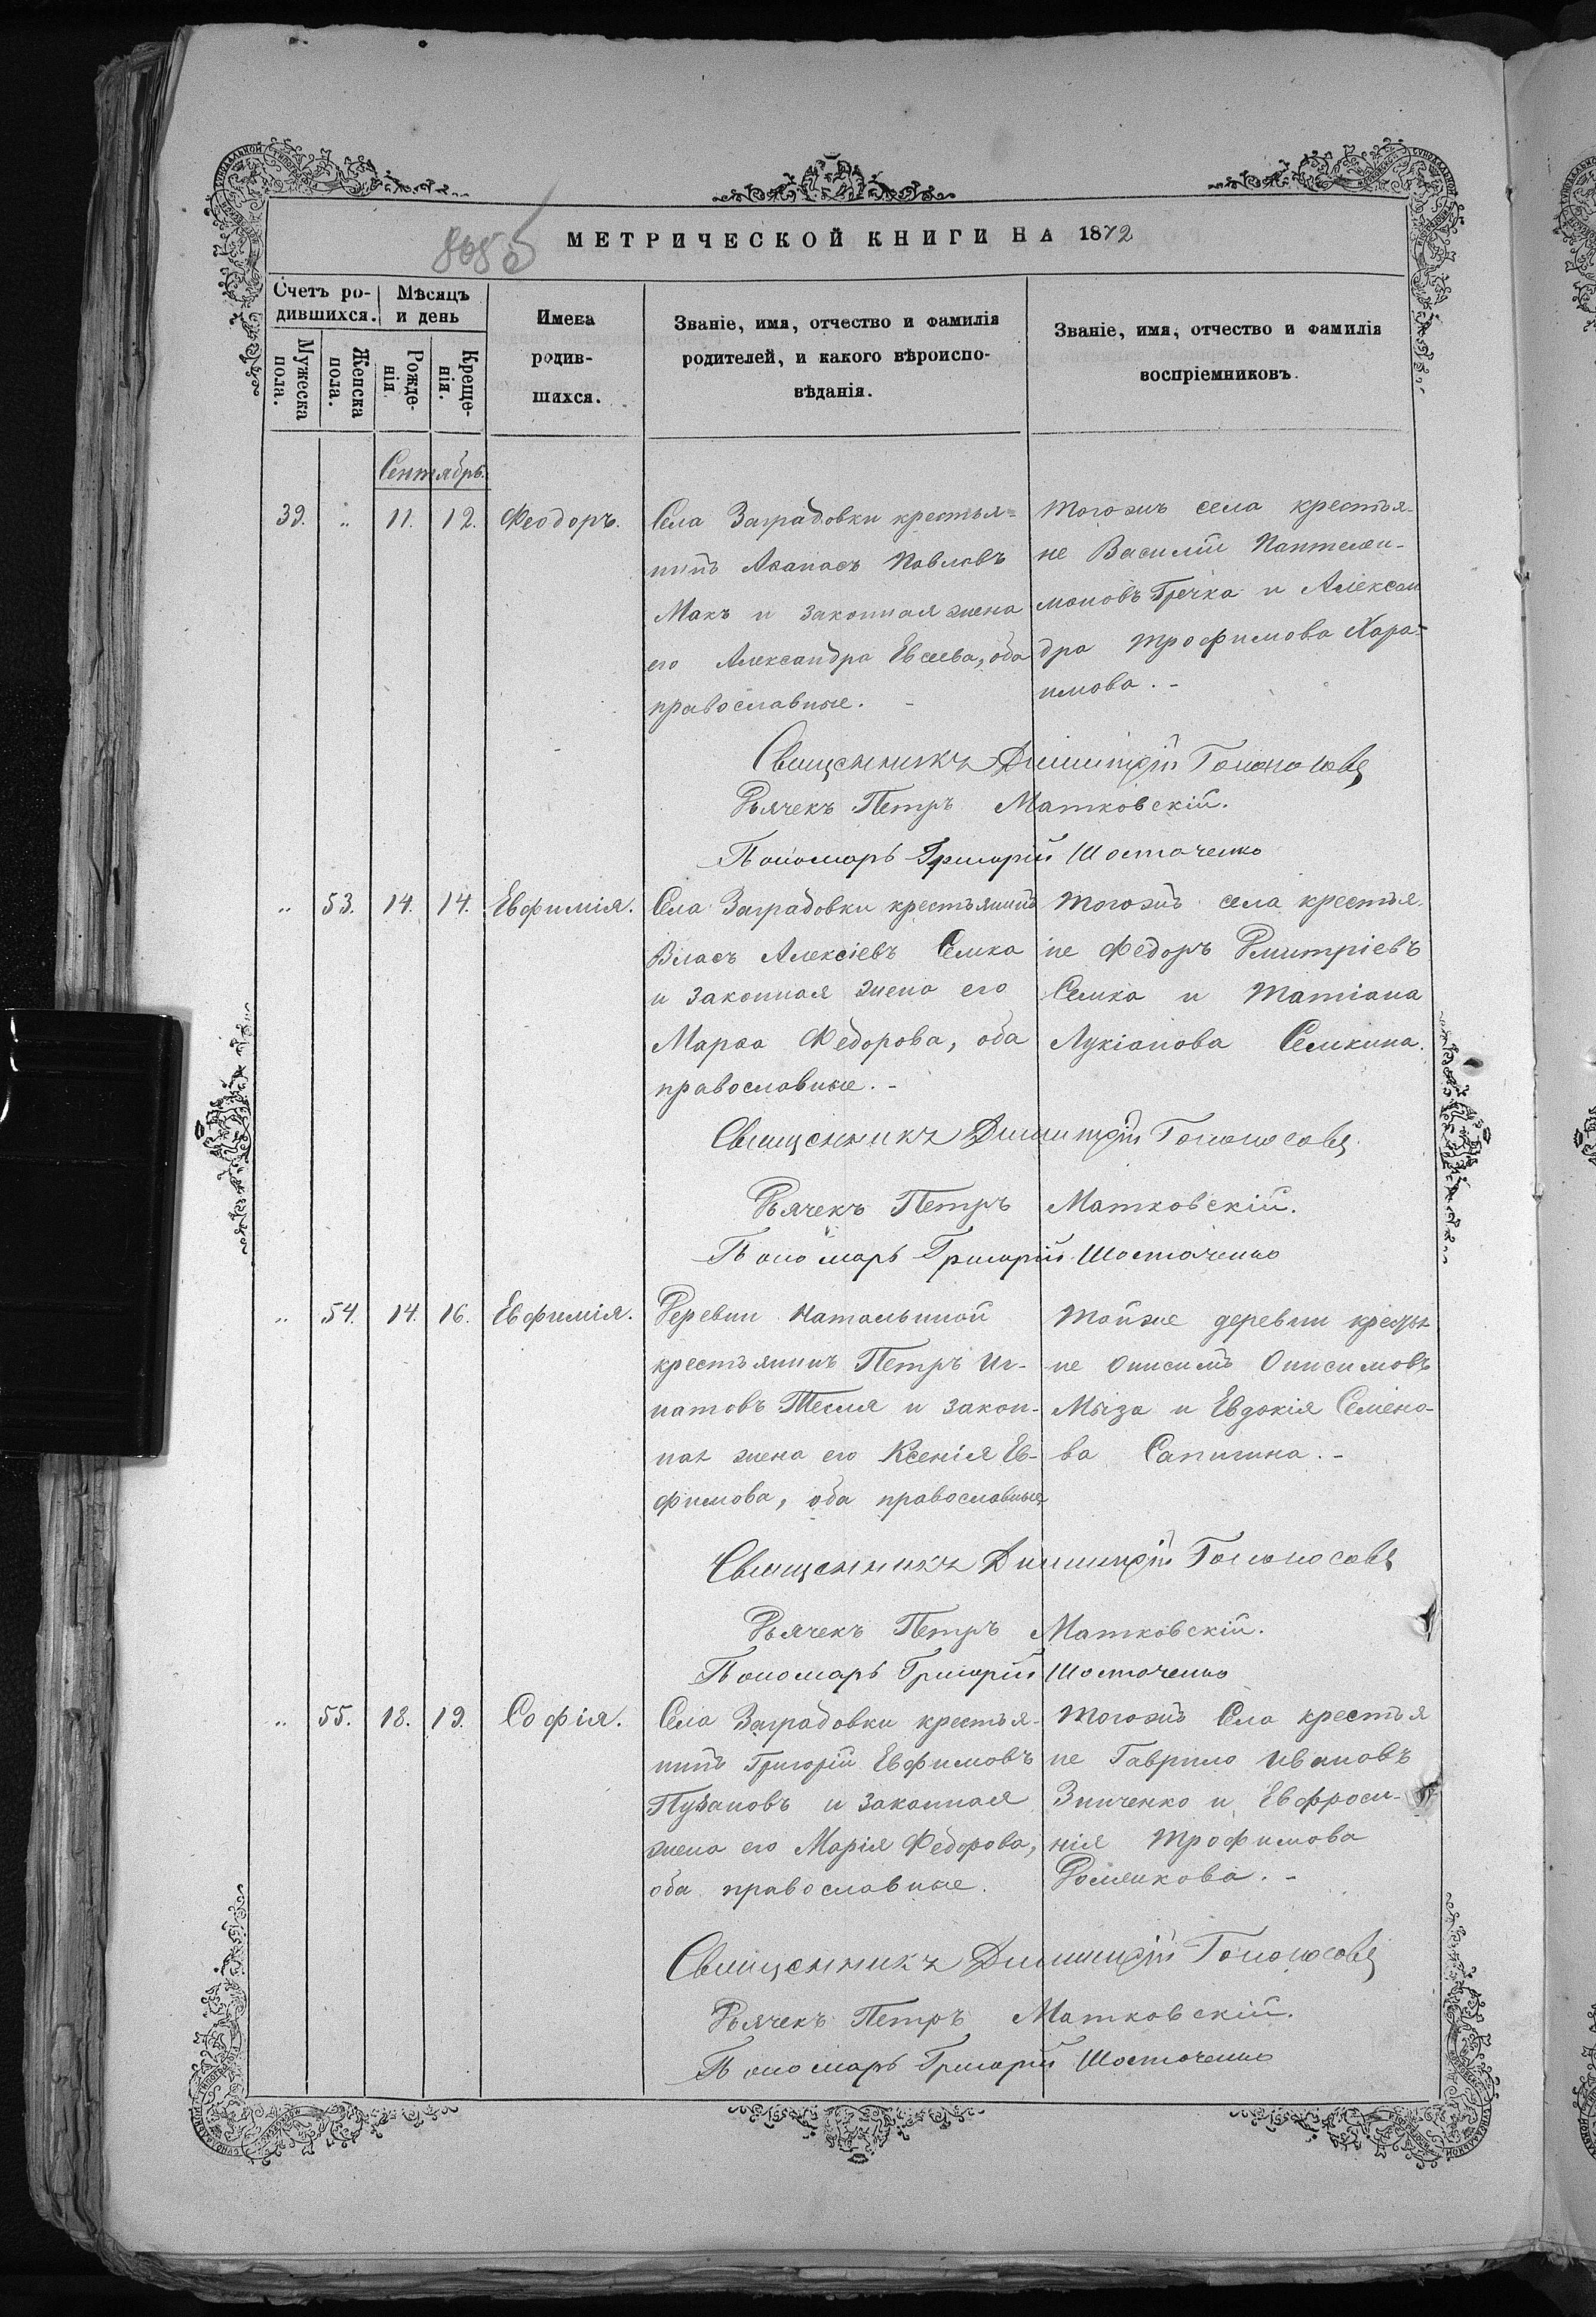 МЕТРИЧЕСКОЙ КНИГИ НА 1872
Счетъ ро-
дившихся.
Мужеска пола.
Женска пола.
Мѣсяцъ
и день
Рожде-
нія
Креще-
нія.
Имена
родив-
шихся.
Званіе, имя, отчество и фамилія
родителей, и какого вѣроиспо-
вѣданія.
Званіе, имя, отчество и фамилія
воспріемниковъ.
Сентябрь.
39. „ 11. 12. Ѳеодоръ.
Села Заградовки крестья-
нинъ Аѳанасъ Павловъ
Макъ и законная жена
его Александра Евсеева, оба
православные. -
Тогожъ села крестья-
не Василій Пантелеи-
моновъ Гречка и Алексан
дра Трофимова Хара-
имова. -
Священникъ Димитрій Голоносовъ
Дьячекъ Петръ Матковскій.
Пономарь Григорій Шостаченко
„ 53. 14. 14. Евфимія.
Села Заградовки крестьянинъ
Власъ Алексіевъ Семка
и законная жена его
Марѳа Федорова, оба
православные. -
Тогожъ села крестья-
не Федоръ Дмитріевъ
Семка и Татіана
Лукіанова Семкина.
Священникъ Димитрій Голоносовъ
Дьячекъ Петръ Матковскій.
Пономарь Григорій Шостаченко
„ 54. 14. 16. Евфимія.
Деревни Натальиной
крестьянинъ Петръ Иг-
натовъ Тесля и закон-
ная жена его Ксенія Ев-
фимова, оба православные
Тойже деревни крестья
не Онисимъ Онисимовъ
Мыза и Евдокія Семено-
ва Сапигина. -
Священникъ Димитрій Голоносовъ
Дьячекъ Петръ Матковскій.
Пономарь Григорій Шостаченко
„ 55. 18. 19. Софія.
Села Заградовки крестья-
нинъ Григорій Евфимовъ
и законная
жена его Марія Федорова,
оба православные.
Тогожъ Села крестья
не Гаврило Ивановъ
Зинченко и Евфроси-
нія Трофимова
Священникъ Димитрій Голоносовъ
Дьячекъ Петръ Матковскій.
Пономарь Григорій Шостаченко